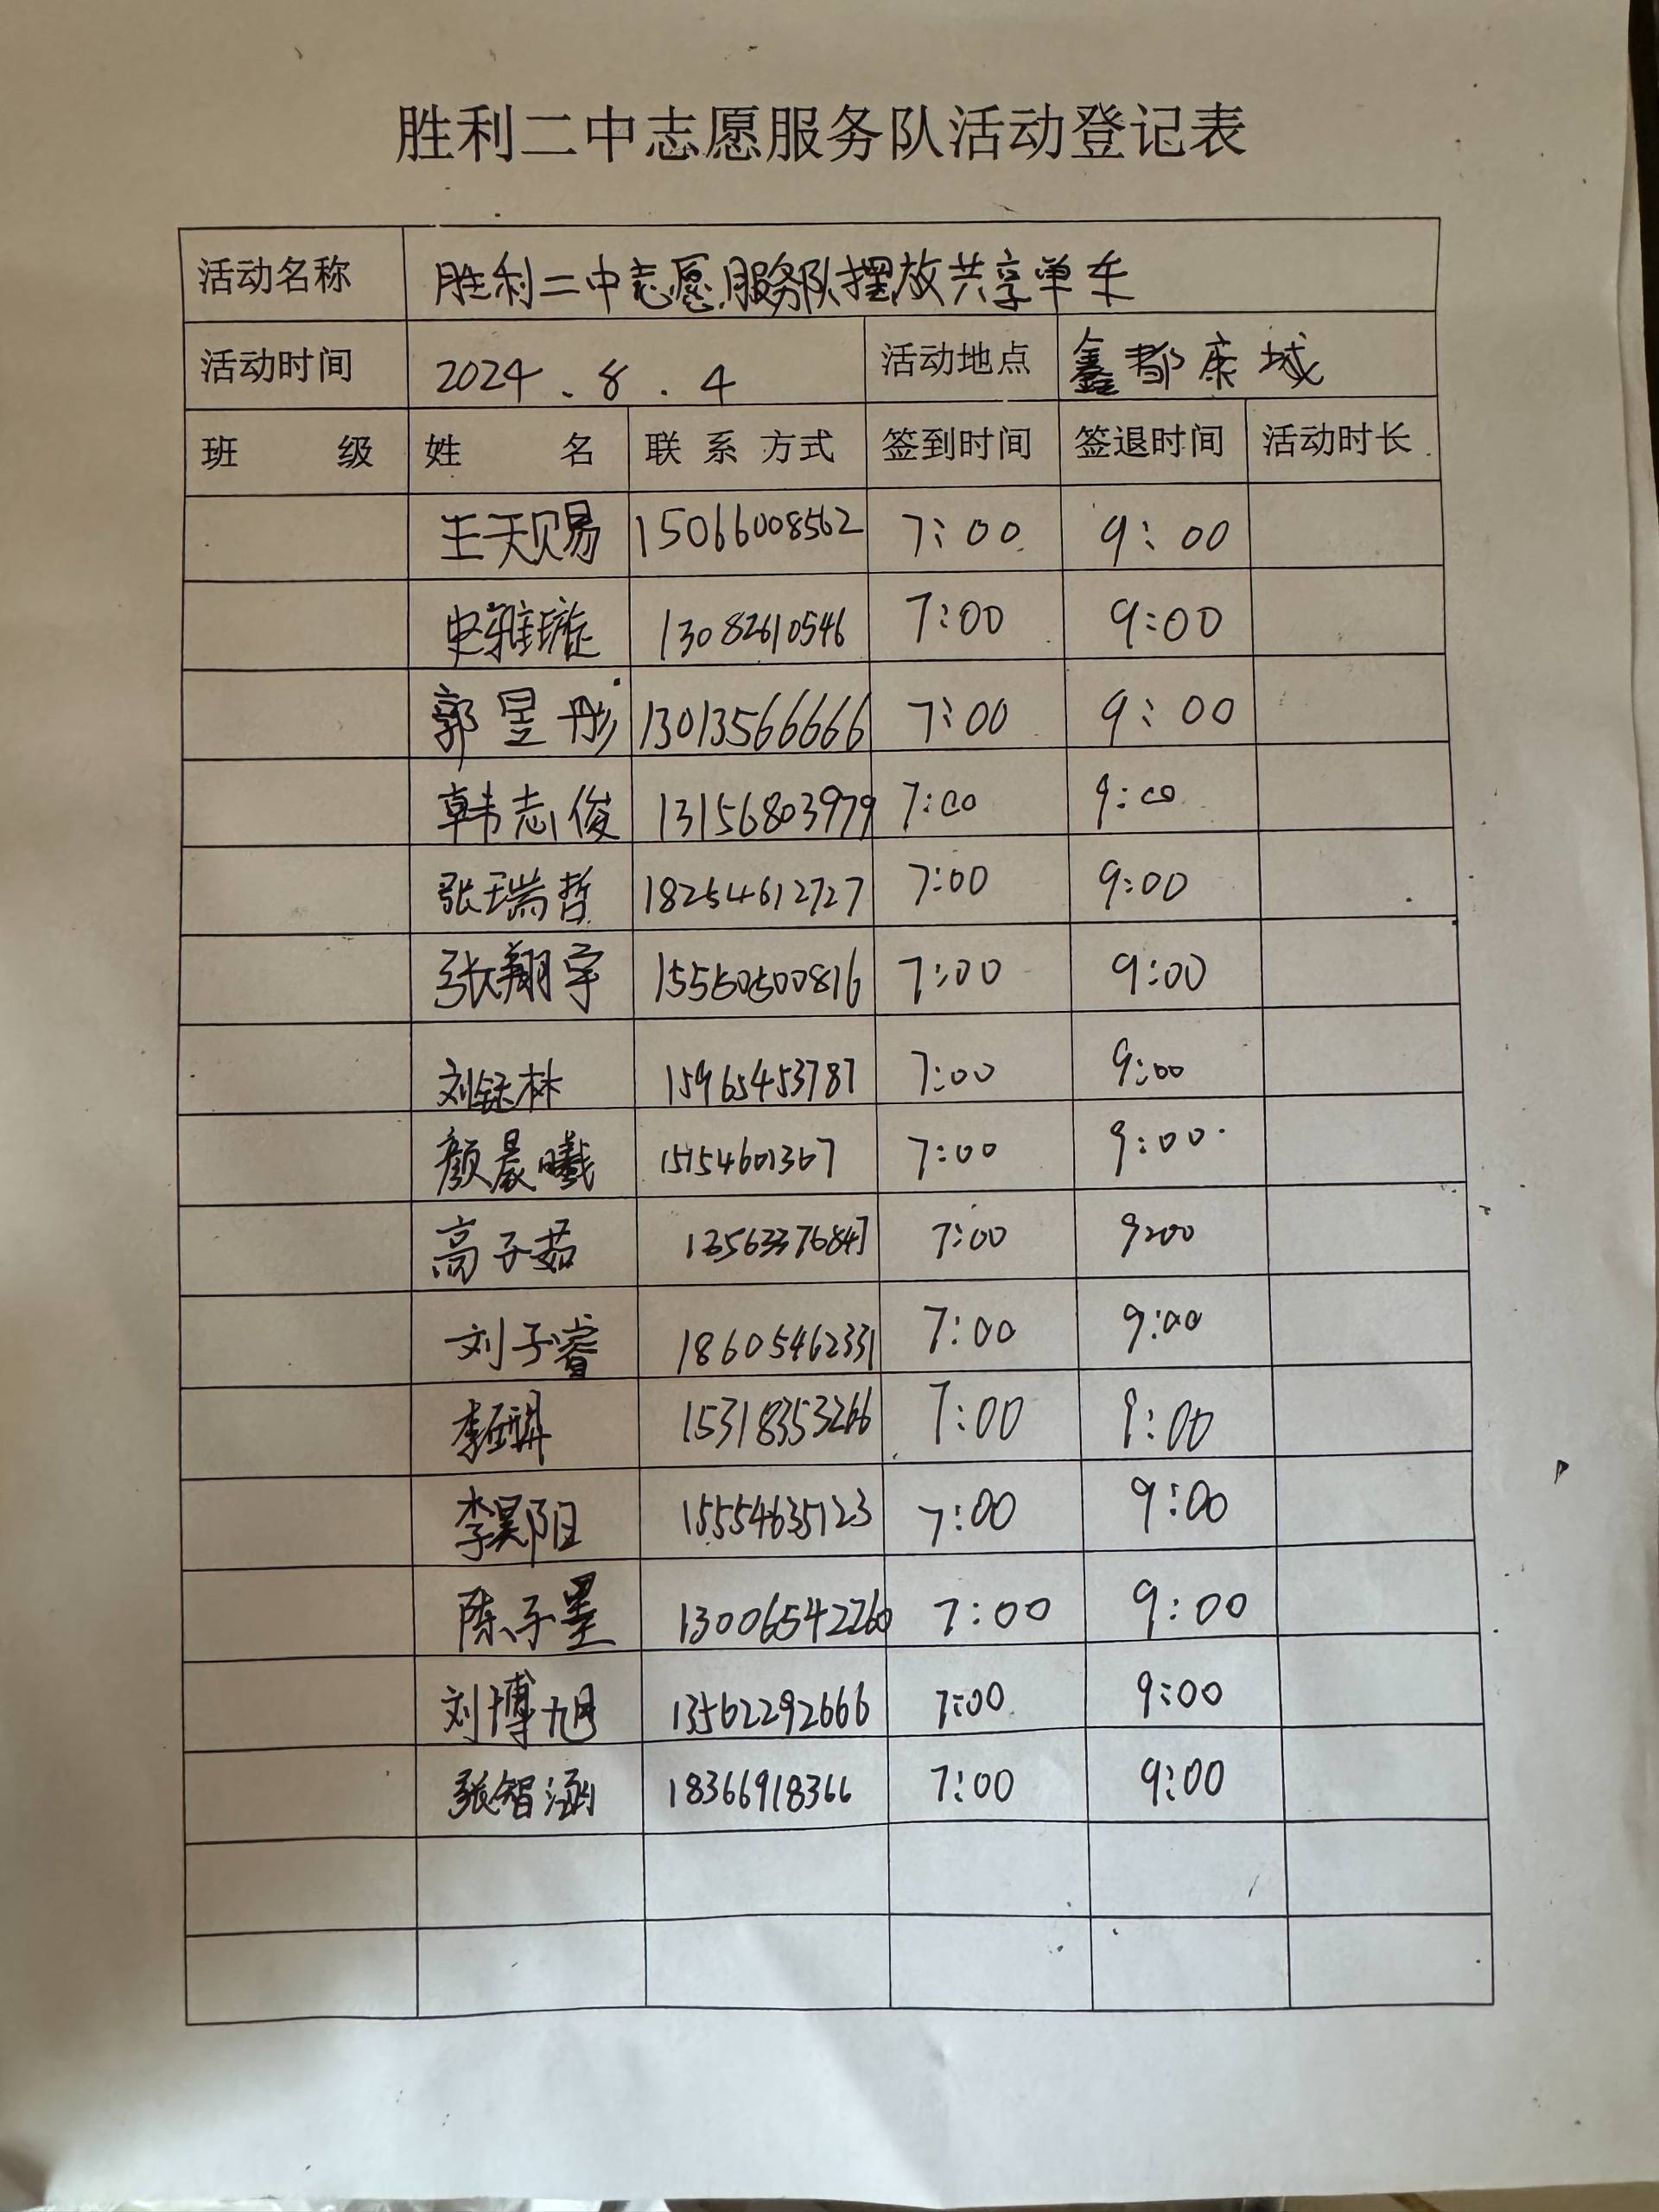 胜利二中志愿服务队活动登记表
活动名称 胜利二中志愿服务队摆放共享单车
活动时间 2024.8.4 活动地点 鑫都康城
班 级 姓 名 联系方式 签到时间 签退时间 活动时长
王天赐 15066008562 7:00 9:00
史雅璇 13082610546 7:00 9:00
郭昱彤 13013566666 7:00 9:00
韩志俊 13156803979 7:00 9:00
张瑞哲 18254612727 7:00 9:00
张翔宇 15550500816 7:00 9:00
刘钰林 15965453787 7:00 9:00
颜晨曦 7:00 9:00
高子茹 13563376847 7:00 9:00
刘子睿 18605462331 7:00 9:00
15318353266 7:00 9:00
李昊阳 15554635123 7:00 9:00
陈子墨 13006542260 7:00 9:00
刘博旭 13562292666 7:00 9:00
张智涵 18366918366 7:00 9:00